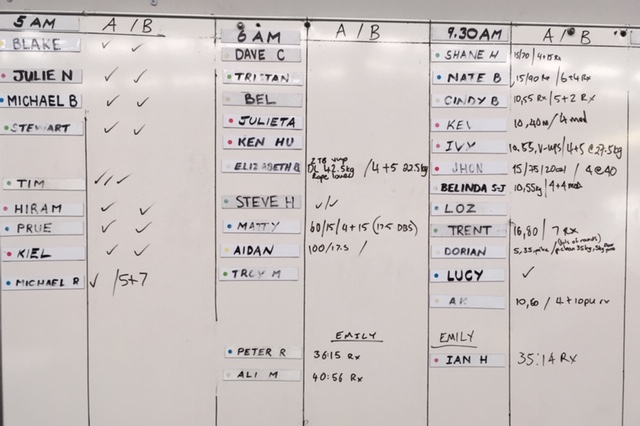 5 AM A / B
BLAKE ✓ ✓
JULIE N ✓ ✓
MICHAEL B ✓ ✓
STEWART ✓ ✓
TIM ✓/✓
HIRAM ✓ ✓
PRUE ✓ ✓
KIEL ✓ ✓
MICHAEL R ✓ /5+7
6 AM A / B
DAVE C
TRISTAN
BEL
JULIETA
KEN HU
ELIZABETH B DL 42.5kg / 4+5 22.5kg
STEVE H ✓/✓
MATTY 60/15/4+15 (17.5 DBS)
AIDAN 100/17.5 /
TROY M
EMILY
PETER R 36:15 Rx
ALI M 40:56 Rx
9.30AM A / B
SHANE H
NATE B 15/90 Rx /6+4 Rx
CINDY B 10,55 Rx / 5+2 Rx
KEV 10,40m / 4 mod
IVY 10,55, V-ups/4+5 @27.5kg
JHON 15/75/20cal / 4@40
BELINDA S-J 10,55kg / 4+4 mod
LOZ
TRENT 16,80 / 7 Rx
DORIAN
LUCY ✓
10,80 / 4+10pu rx
EMILY
IAN H 35:14 Rx